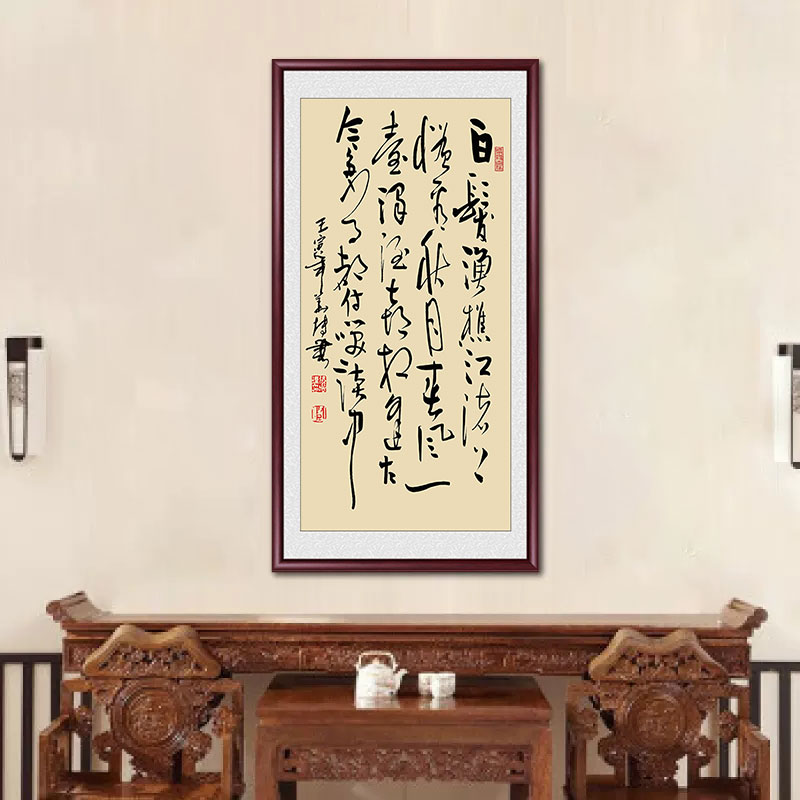 白髮漁樵江渚上
慣看秋月春風一
壺濁酒喜相逢古
今多少事都付咲談中
壬寅年書